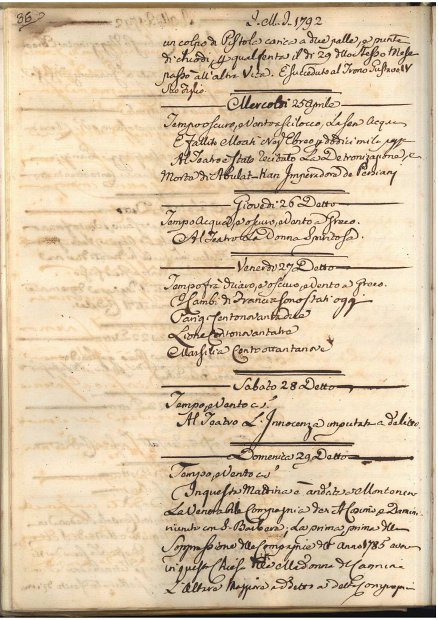 86
1792
un colpo di Pistola carica a due palle, e punte
di chiodi, quel ferita il dì 29 dello stesso Mese
passò all'altra Vita. E succeduto al Trono Gustavo IV
suo figlio.
Mercoldì 25 Aprile
Tempo oscuro, e vento a scilocco, La sera Acqua
E fallito Ebreo dodici mila
Al Teatro è stato recitato La Detronizazione, e
Morte di Abulat-Kan Imperadore de Persiani
Giovedì 26 Detto
Tempo Acqua, e oscuro, e vento a Greco.
Al Teatro La Donna Spiritosa.
Venerdì 27 Detto
Tempo frà chiaro, e oscuro, e vento a Greco.
Cambi di Francia sono stati oggi
Parigi Centonovantadue
Lione Centonovantatre
Marsilia Centonovantanove
Sabato 28 Detto
Tempo, e Vento
Al Teatro L'Innocenza imputata a delitto.
Domenica 29 Detto
Tempo, e Vento
In questa Mattina è andata a Montenero
La Venerabile Compagnia de SS. Cosimo, e Damiano
riunita con S. Barbera; La prima prima della
Soppressione delle Compagnie dell' Anno 1785 aveva
in questa Chiesa della Madonna
L'Altare Maggiore addetto a detta Compagnia